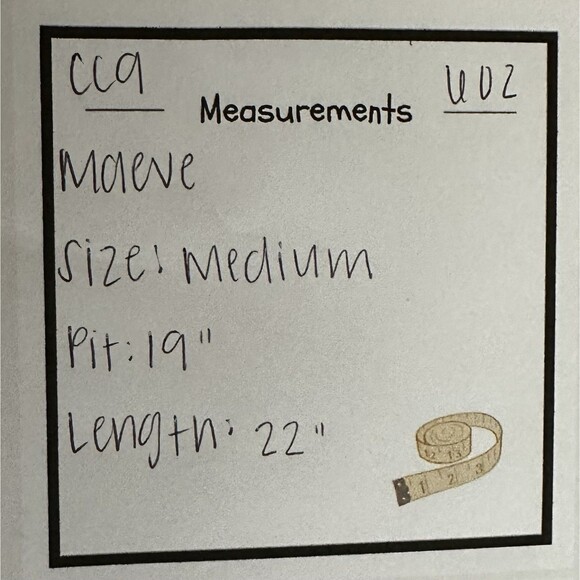 CC9
Measurements
602
Maeve
Size: Medium
Pit: 19"
Length: 22"